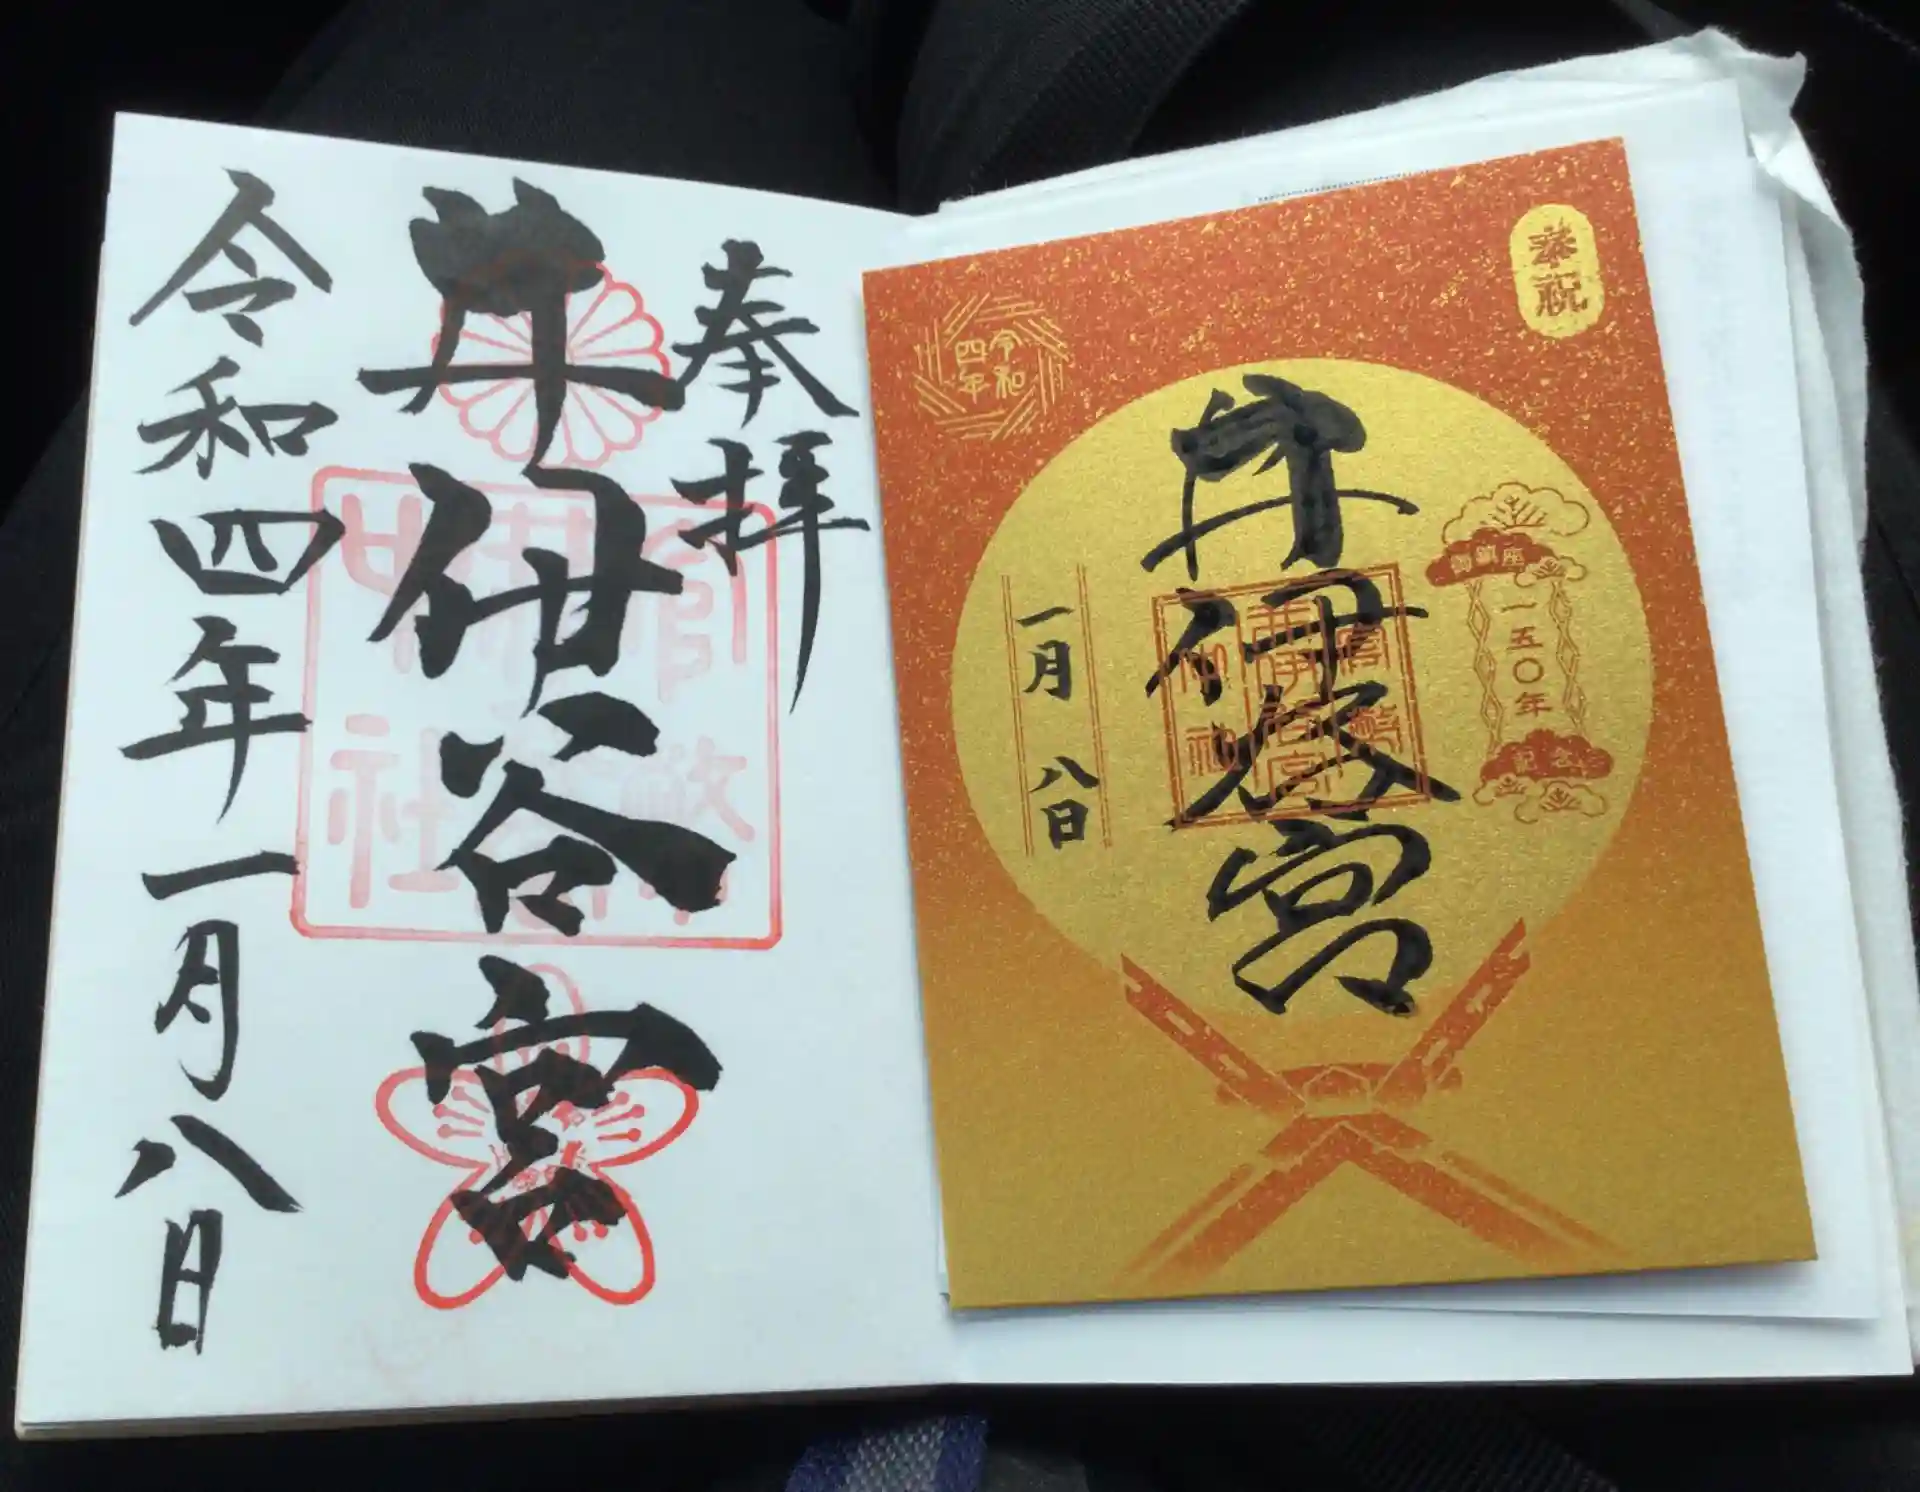 奉拝
井伊谷宮
官幣
中社
令和四年一月八日
奉祝
御鎮座
一五〇年
記念
井伊谷宮
令和
四年
一月八日